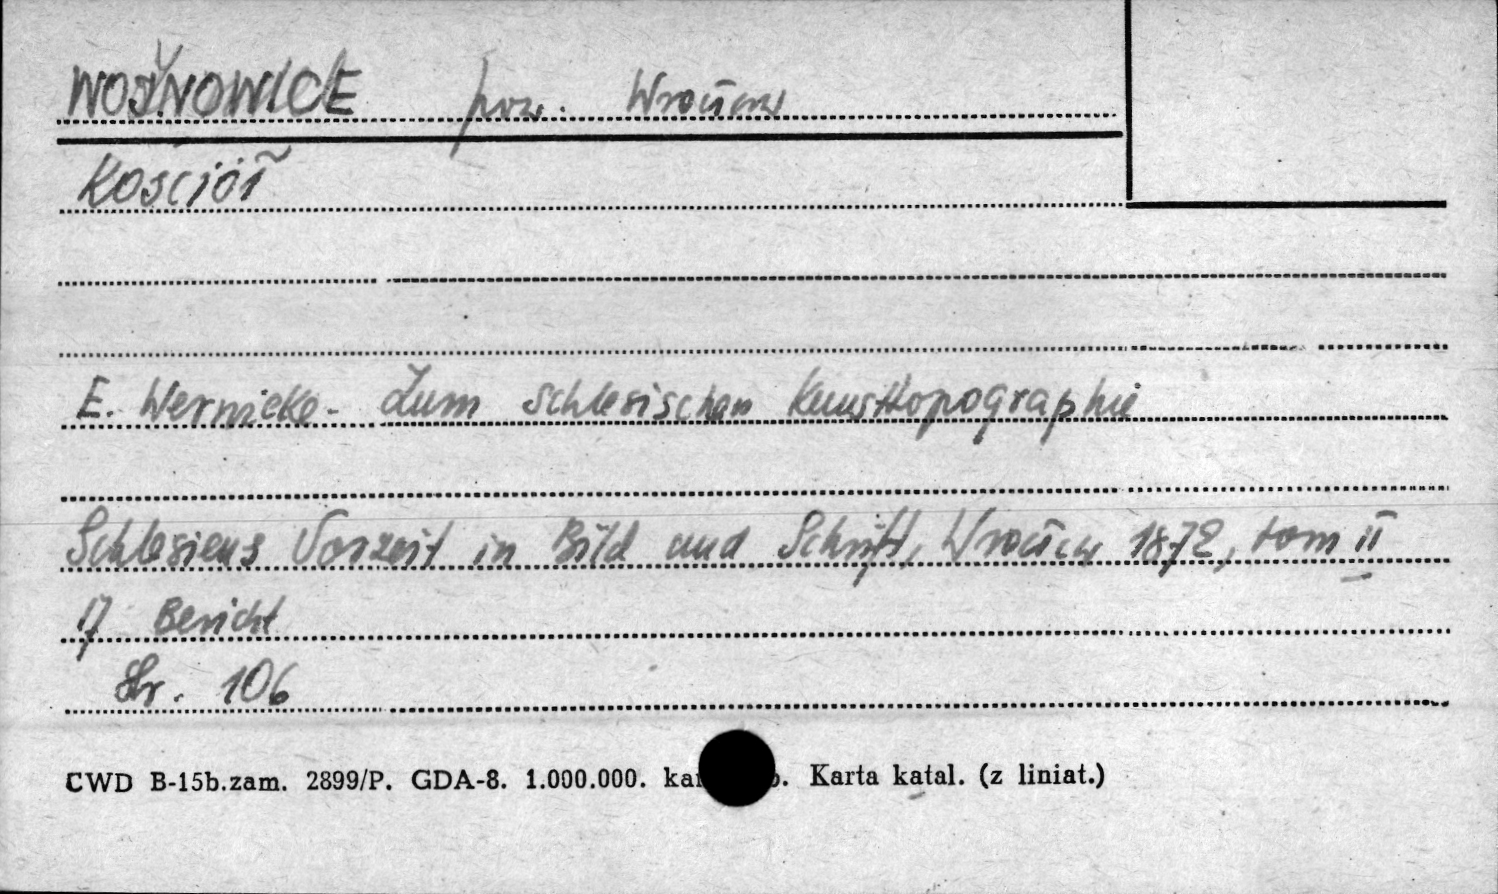 WOŹNOWICE pow. Wrocław
Kościół
E. Wernicke - Zum schlesischen Kunsttopographie
Schlesiens Vorzeit in Bild und Schrift, Wrocław 1872, tom II
17 Bericht
Str. 106
CWD B-15b.zam. 2899/P. GDA-8. 1.000.000. Karta katal. (z liniat.)